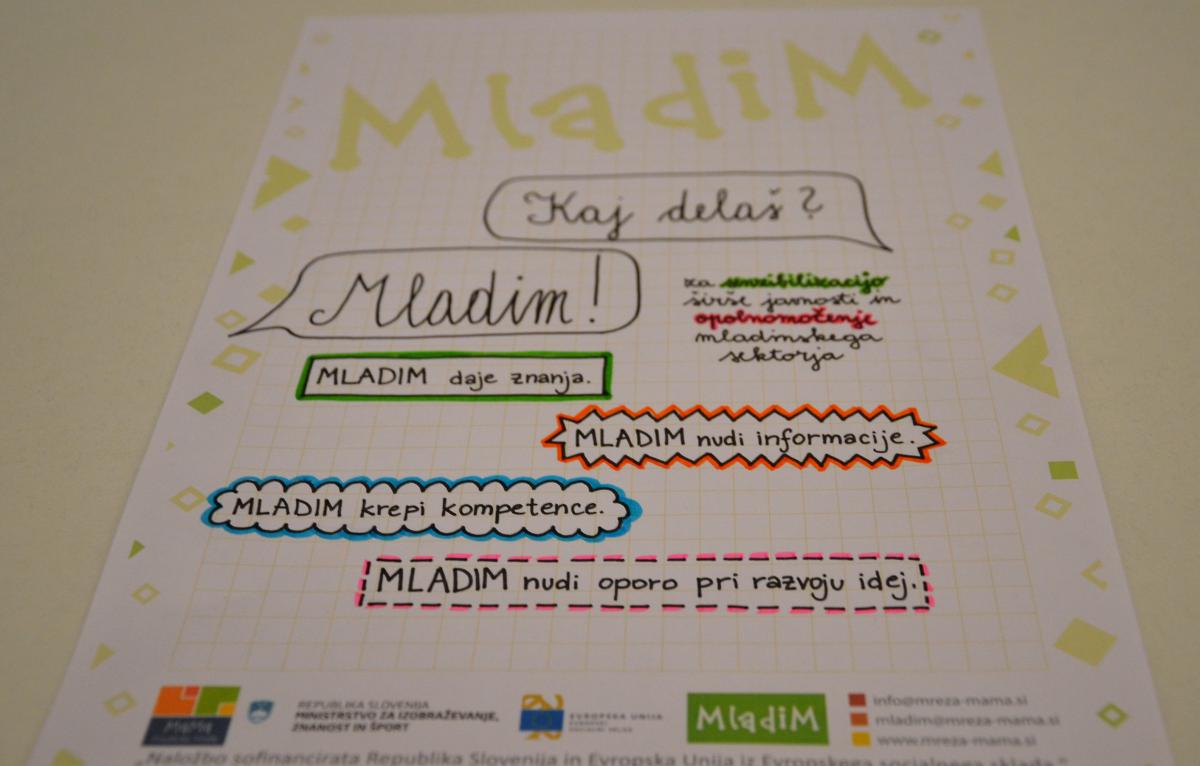 MladiM
Kaj delaš?
Mladim!
za senzibilizacijo
širše javnosti in
opolnomočenje
mladinskega
sektorja
MLADIM daje znanja.
MLADIM nudi informacije.
MLADIM krepi kompetence.
MLADIM nudi oporo pri razvoju idej.
MaMa
REPUBLIKA SLOVENIJA
MINISTRSTVO ZA IZOBRAŽEVANJE,
ZNANOST IN ŠPORT
EVROPSKA UNIJA
EVROPSKI
SOCIALNI SKLAD
MladiM
info@mreza-mama.si
mladim@mreza-mama.si
www.mreza-mama.si
„Naložbo sofinancirata Republika Slovenija in Evropska Unija iz Evropskega socialnega sklada."